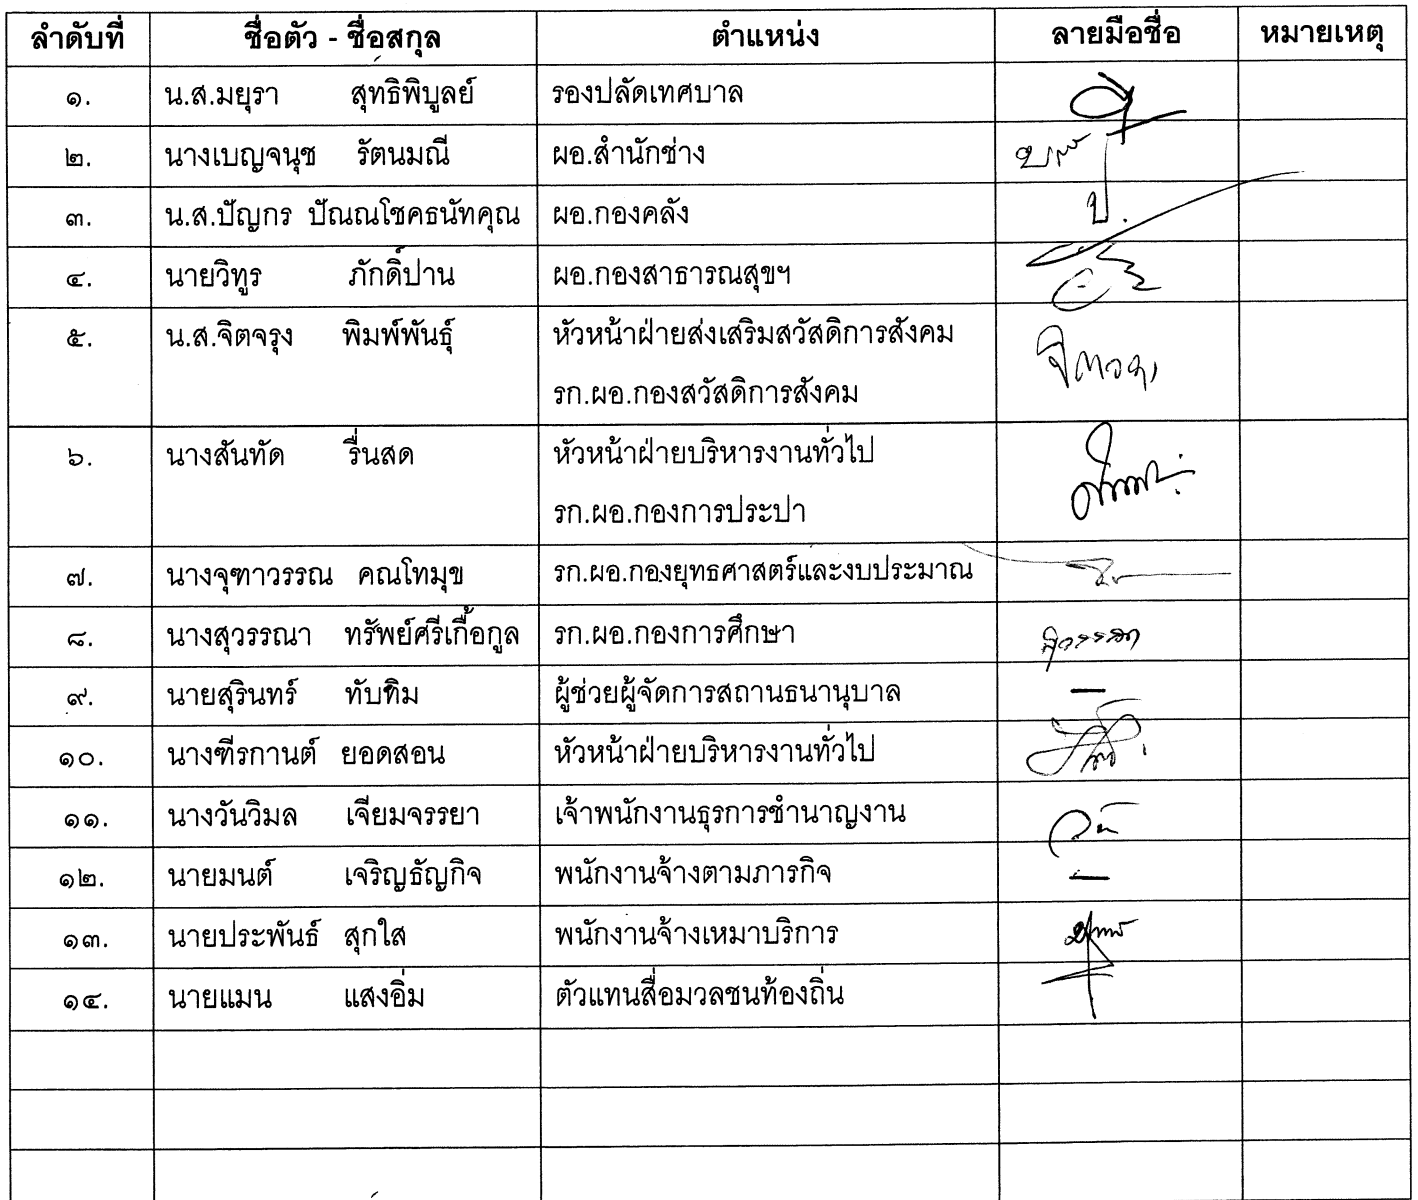 ลำดับที่ ชื่อตัว - ชื่อสกุล ตำแหน่ง ลายมือชื่อ หมายเหตุ
๑. น.ส.มยุรา สุทธิพิบูลย์ รองปลัดเทศบาล
๒. นางเบญจนุช รัตนมณี ผอ.สำนักช่าง
๓. น.ส.ปัญกร ปัณณโชคธนัทคุณ ผอ.กองคลัง
๔. นายวิทูร ภักดิ์ปาน ผอ.กองสาธารณสุขฯ
๕. น.ส.จิตจรุง พิมพ์พันธุ์ หัวหน้าฝ่ายส่งเสริมสวัสดิการสังคม
รก.ผอ.กองสวัสดิการสังคม
๖. นางสันทัด รื่นสด หัวหน้าฝ่ายบริหารงานทั่วไป
รก.ผอ.กองการประปา
๗. นางจุฑาวรรณ คณโทมุข รก.ผอ.กองยุทธศาสตร์และงบประมาณ
๘. นางสุวรรณา ทรัพย์ศรีเกื้อกูล รก.ผอ.กองการศึกษา สุวรรณา
๙. นายสุรินทร์ ทับทิม ผู้ช่วยผู้จัดการสถานธนานุบาล –
๑๐. นางฑีรกานต์ ยอดสอน หัวหน้าฝ่ายบริหารงานทั่วไป
๑๑. นางวันวิมล เจียมจรรยา เจ้าพนักงานธุรการชำนาญงาน
๑๒. นายมนต์ เจริญธัญกิจ พนักงานจ้างตามภารกิจ –
๑๓. นายประพันธ์ สุกใส พนักงานจ้างเหมาบริการ
๑๔. นายแมน แสงอิ่ม ตัวแทนสื่อมวลชนท้องถิ่น